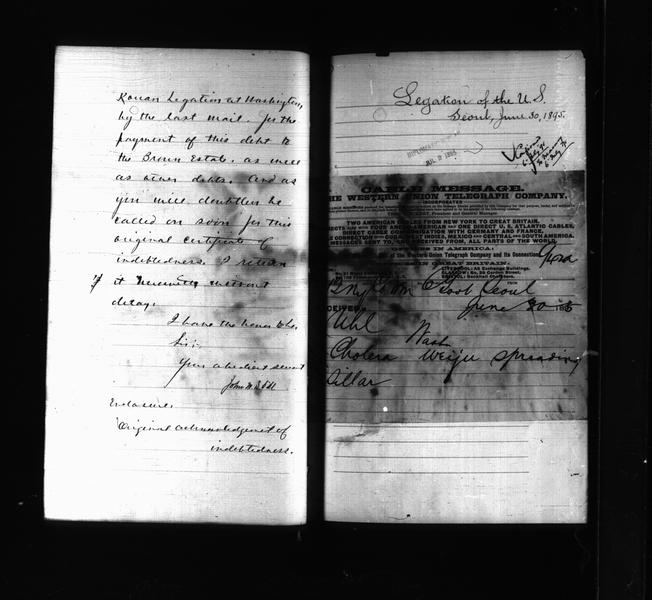 Korean Legation at Washington,
by the last mail for the
payment of this debt to
the Brown Estate, as well
as other debts. And as
you will doubtless be
called on soon for this
original certificate of
indebtedness. I return
it herewith without
delay.
I have the honor to be,
Sir:
Your obedient servant
John M. B. Sill
Enclosure.
Original acknowledgement of
indebtedness.
Legation of the U.S.
Seoul, June 30, 1895.
CABLE MESSAGE.
THE WESTERN UNION TELEGRAPH COMPANY.
INCORPORATED
President and General Manager.
TWO AMERICAN CABLES FROM NEW YORK TO GREAT BRITAIN.
CONNECTS ALSO WITH FOUR ANGLO-AMERICAN AND ONE DIRECT U. S. ATLANTIC CABLES,
DIRECT CABLE COMMUNICATION WITH GERMANY AND FRANCE,
CABLE CONNECTION WITH CUBA, WEST INDIES, MEXICO AND CENTRAL AND SOUTH AMERICA.
MESSAGES SENT TO, AND RECEIVED FROM, ALL PARTS OF THE WORLD.
IN AMERICA:
of the Western Union Telegraph Company and its Connections
IN GREAT BRITAIN:
LIVERPOOL: A8 Exchange Buildings.
GLASGOW: 29 Gordon Street.
BRISTOL: Backhall Chambers.
Seoul
June 30 1895
Uhl
Wash
Cholera Weiju spreading
Sillar